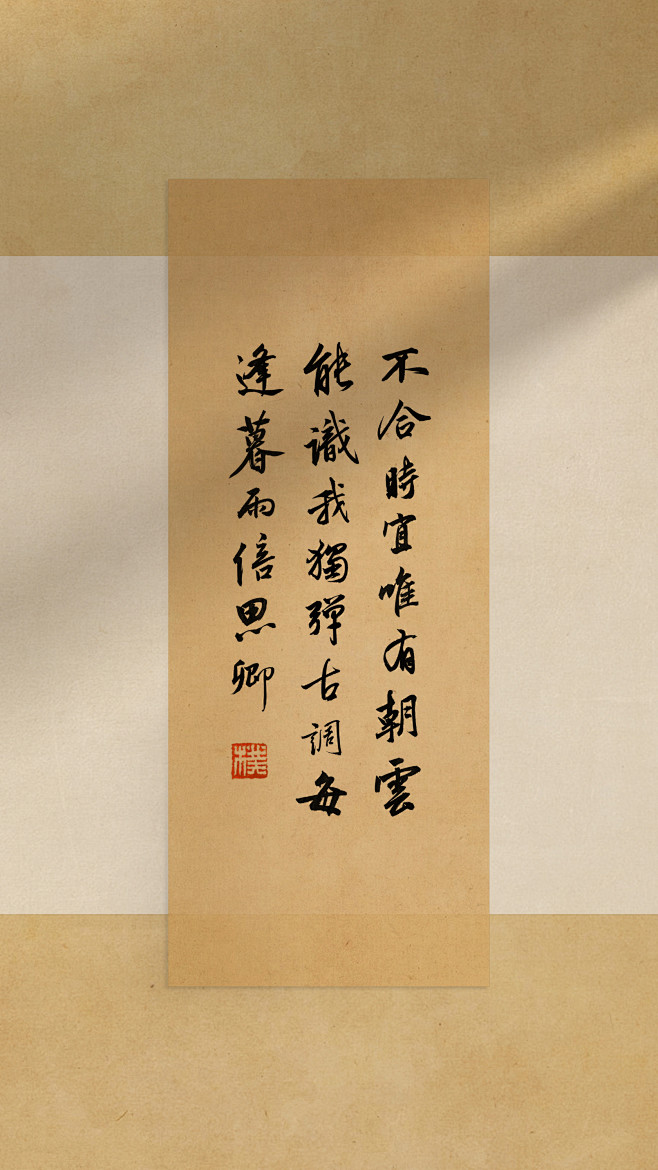 不合時宜唯有朝雲
能識我獨弹古調每
逢暮雨倍思卿